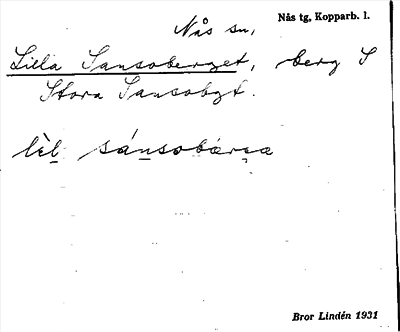 Nås sn,
Nås tg, Kopparb. l.
Lilla Sansoberget, berg S
Stora Sansobgt.
lèl sánsobærsæ
Bror Lindén 1931